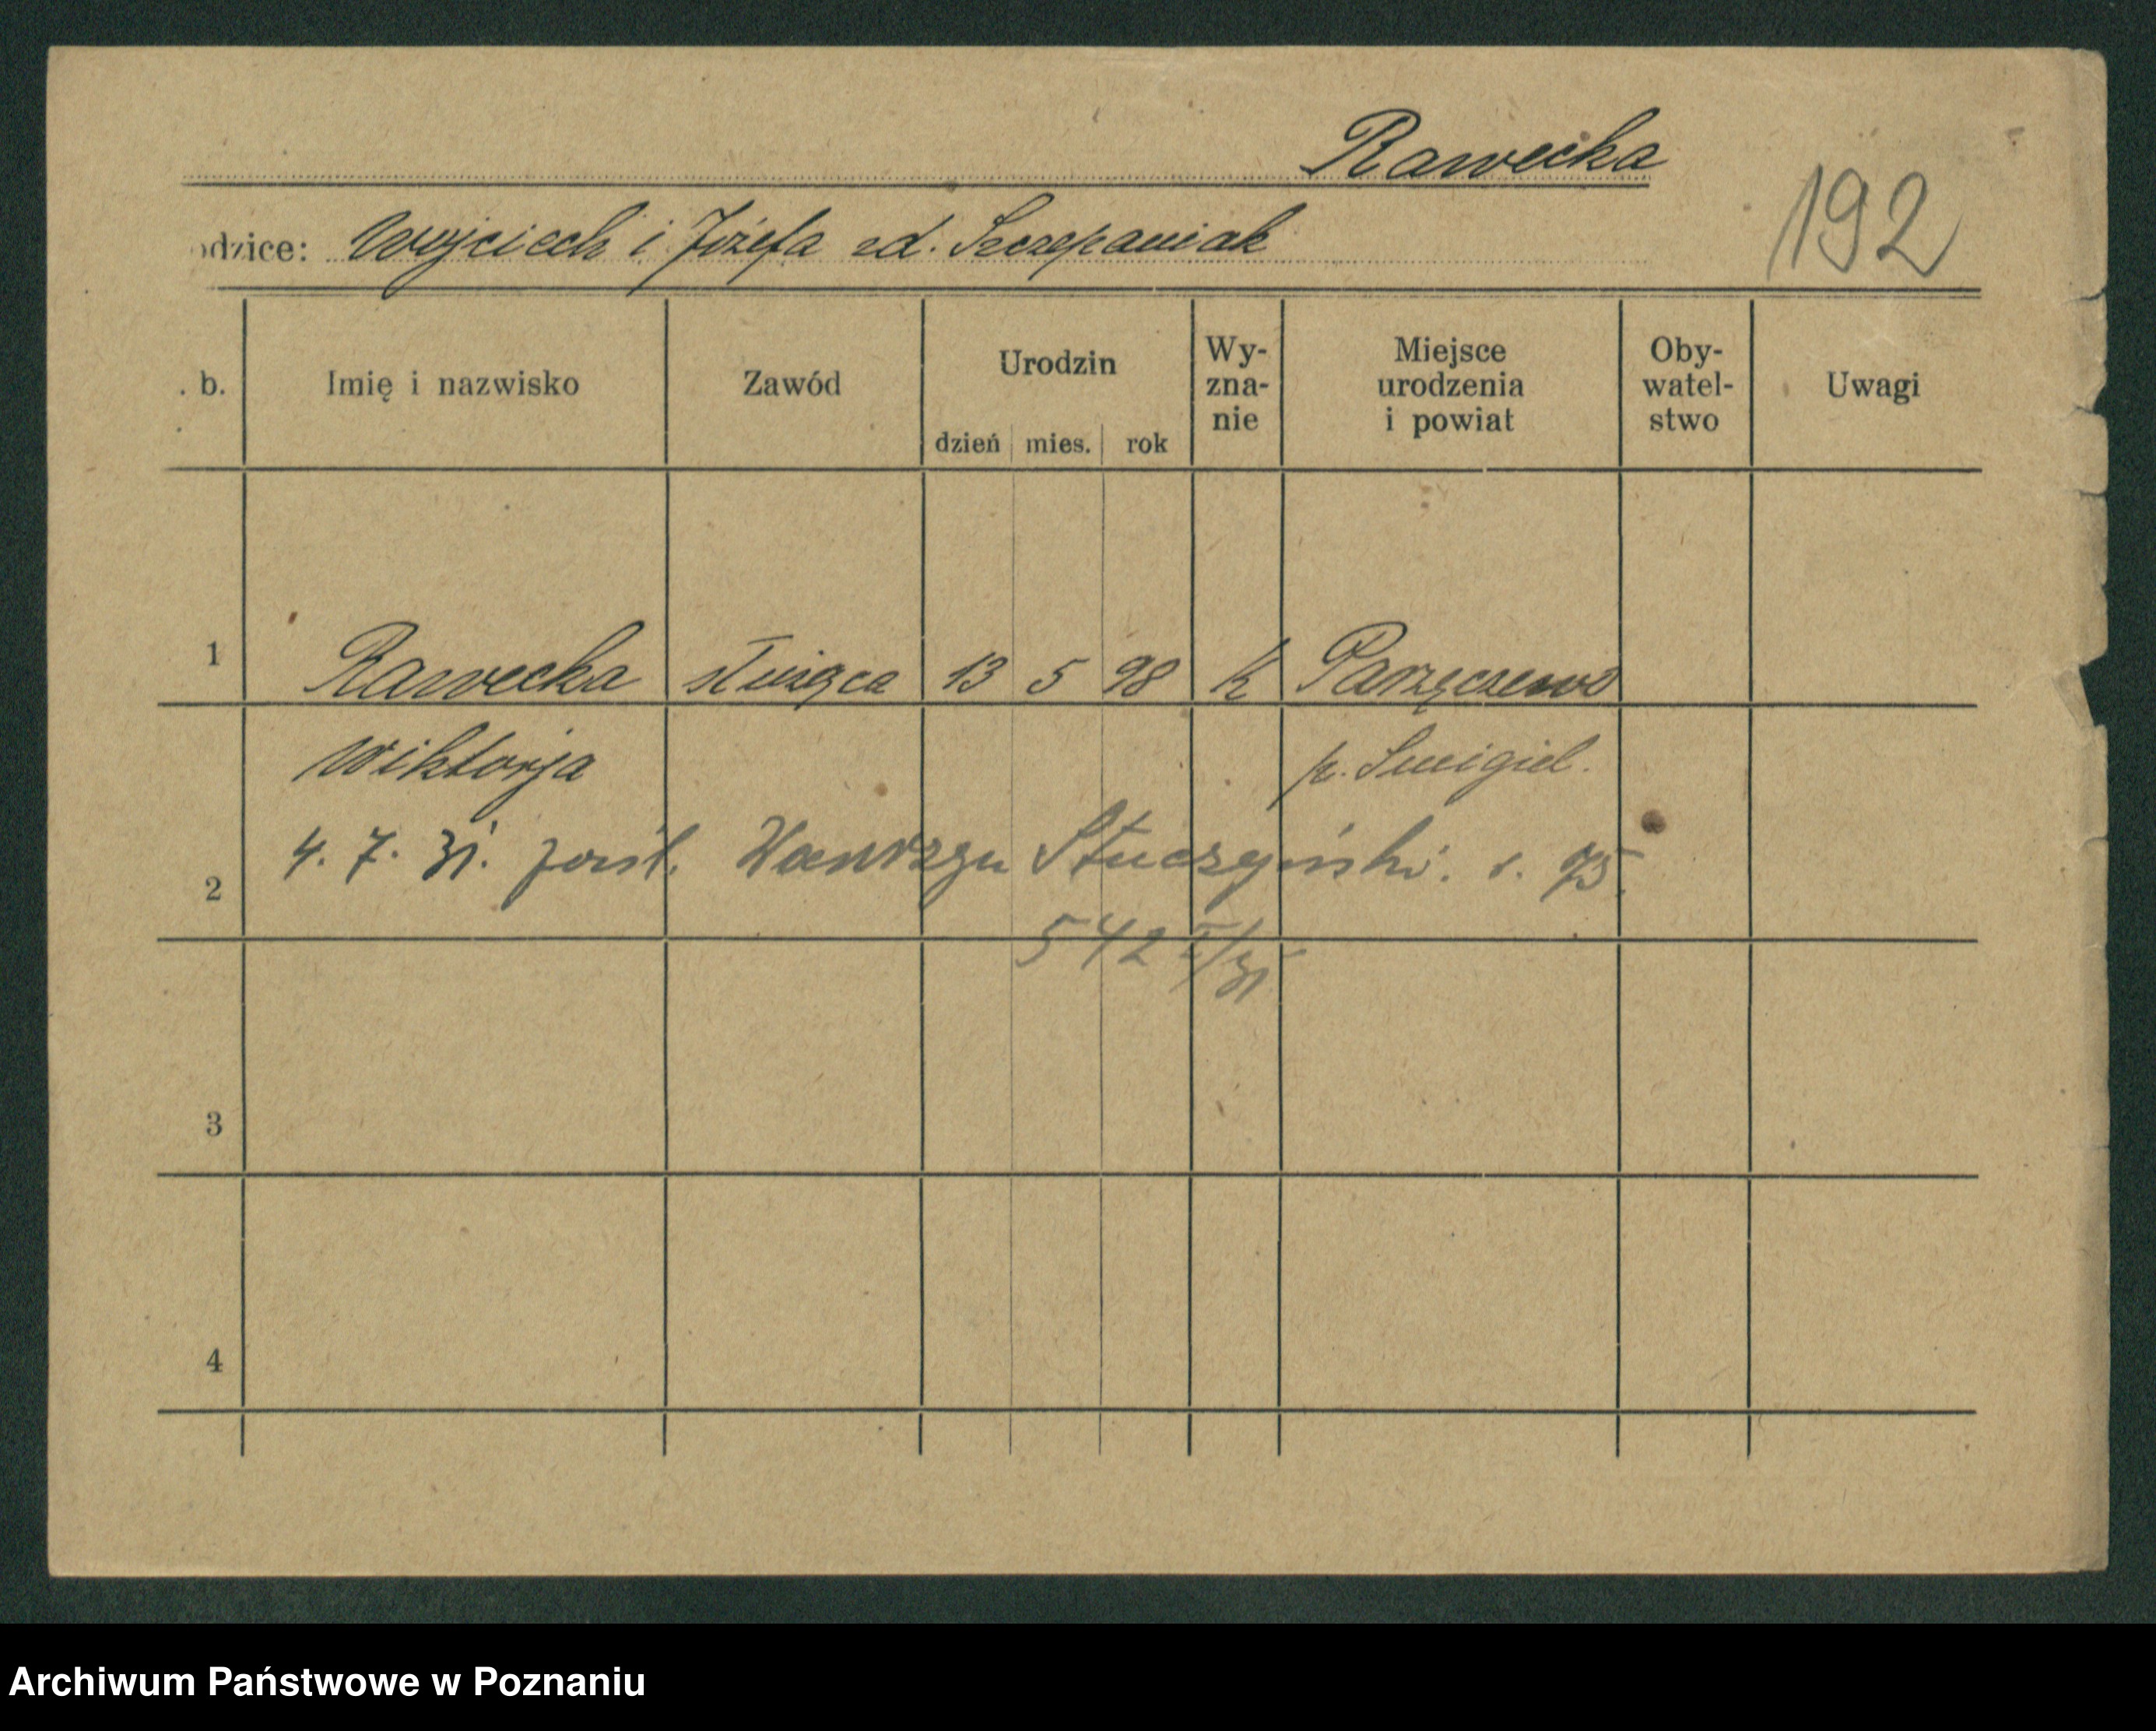 Rawecka
192
odzice: Wojciech i Józefa zd. Szczepaniak
. b.
Imię i nazwisko
Zawód
Urodzin
dzień mies. rok
Wy-
zna-
nie
Miejsce
urodzenia
i powiat
Oby-
watel-
stwo
Uwagi
1 Rawecka służąca 13 5 98 k Parzęczewo
Wiktorja p. Smigiel.
4. 7. 31. Stuczyński. 75.
2
542 I/31
3
4
Archiwum Państwowe w Poznaniu